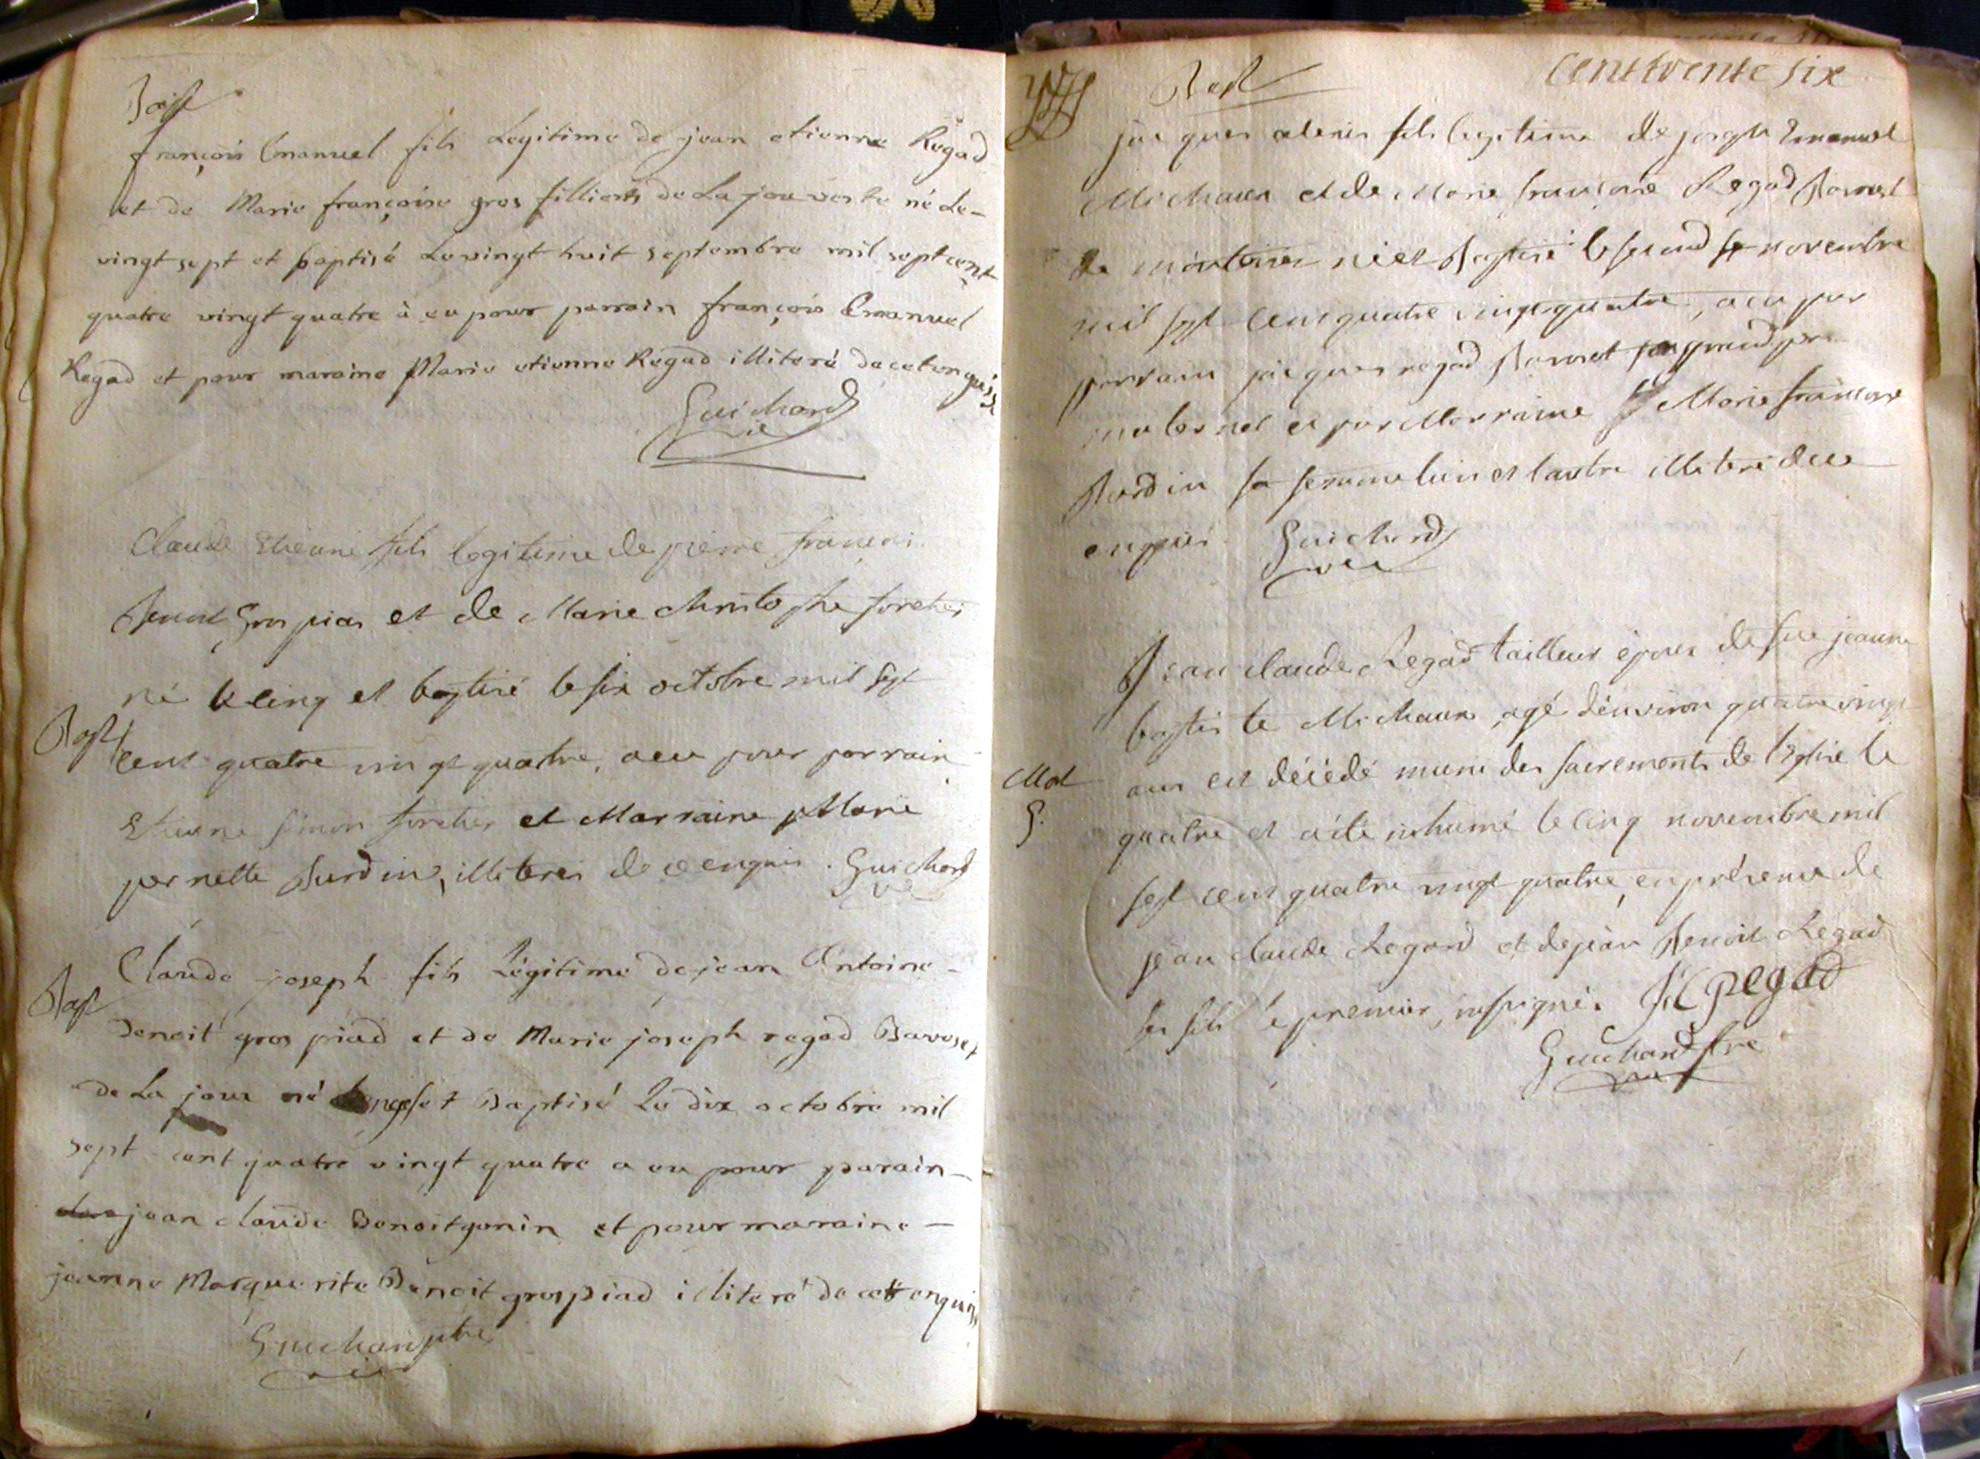 Bapt
françois Emanuel fils Legitime de jean etienne Regad
et de Marie françoise gros filliers de La joux verte né Le-
vingt sept et baptisé Le vingt huit septembre mil sept cent
quatre vingt quatre à eu pour parrain françois Emanuel
Regad et pour maraine Marie etienne Regad illiteré de ce enquis
Guichard
vic
Claude Etienne fils legitime de pierre francois
Benoit Gros piad et de Marie Christophe foretier
né le cinq et baptisé le six octobre mil sept
Bapt
cent quatre vingt quatre, a eu pour parrain
Etienne simon foretier et Marraine Marie
pernette Burdin, illiteres de ce enquis. Guichard
vic
Claude joseph fils Légitime de jean Antoine-
Bapt
benoit gros piad et de Marie joseph regad Bavoset
de La joux né et Baptisé Le dix octobre mil
sept cent quatre vingt quatre a eu pour parain-
jean claude Benoitgonin et pour maraine-
jeanne Marguerite Benoit grospiad illiteré de cett enquis
Guichard ptre
vic
cent trente six
Bapt
jacques alexis fils legitime de joseph Emanuel
Michaux et de Marie françoise Regad Bavoset
de né et Baptisé le second novembre
mil sept cent quatre vingt quatre, a eu par
parrain jacques regad Bavoset son grand pere
maternel et par Marraine Marie françoise
Burdin sa femme lun et lautre illiteré de ce
enquis. Guichard
vic
Jean claude Regad tailleur époux de feue jeanne
baptiste Michaux agé d'environ quatre vingt
ans est décédé muni des sacrements de l'eglise le
quatre et a été inhumé le cinq novembre mil
sept cent quatre vingt quatre, en présence de
jean claude Regard et de jean Benoit Regad
ses fils le premier, soussigné. J C Regad
Guichard ptre
vic